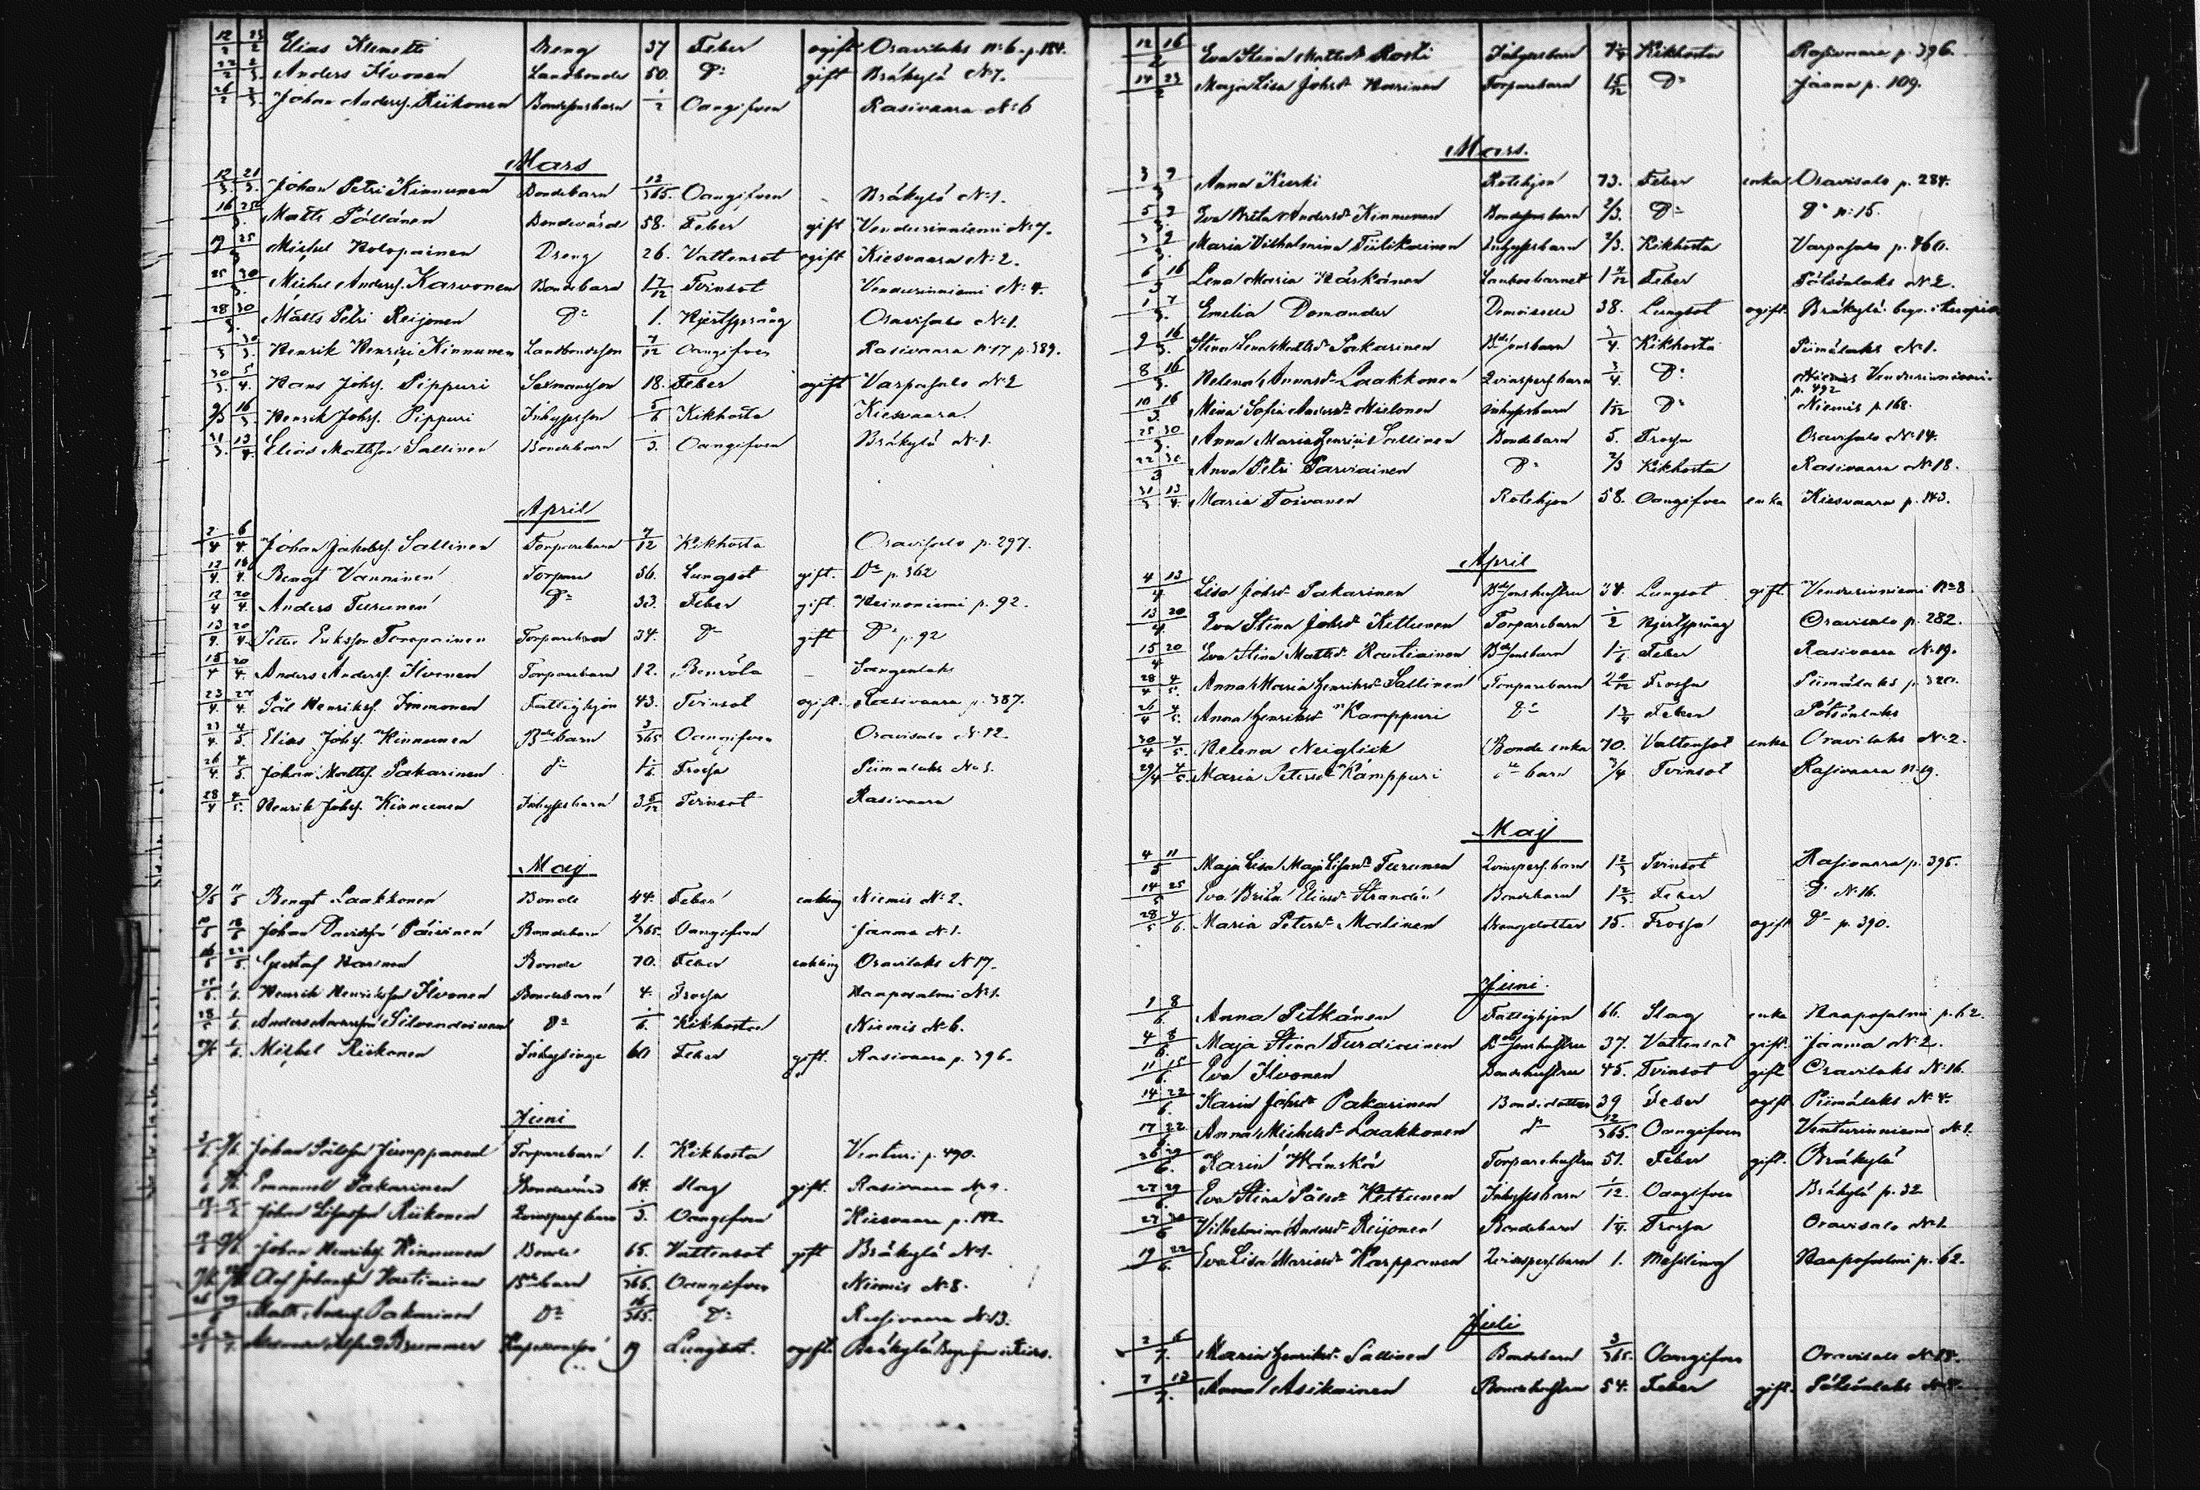 12/2 23/2 Elias Klemetti Dreng 37 Feber ogift Oravilaks No 6. p. 184.
22/2 2/3 Anders Ilvonen Landbonde 50. Do gift Bråkylä No 7.
26/2 2/3 Johan Anders. Riikonen Bondesbarn 1/2 Oangifven Rasivaara No 6
Mars
12/3. 21/3. Johan Petri Kinnunen Bondebarn 12/365. Oangifven Bråkylä No 1.
16 25/3. Matts Pöllänen Bondevärd 58. Feber gift Vendurinniemi No 7.
19 25/3 Michel Holopainen Dreng 26. Vattensot ogift Kiesvaara No 2.
25 30/3. Michel Anders. Karvonen Bondebarn Tvinsot Vendurinniemi No 4.
28 30/3. Matts Petri Reijonen Do 1. Hjertsprång Oravisalo No 1.
30/3. Henrik Henrici Kinnunen Landbondeson 7/12 Oangifven Rasivaara No 17 p. 389.
30/3. 5/4. Hans Johs. Pippuri 18. Feber ogift Varpasalo No 2
9/3 16/3. Henrik Johs. Pippuri Inhysesson 5/6 Kikhosta Kiesvaara.
31/3. 13/4 Elias Mattson Sallinen Bondebarn 1/3. Oangifven Bråkylä No 1.
April
2/4 6/4. Johan Jakobs. Sallinen Torparebarn 7/12 Kikhosta Oravisalo p. 297.
12/4. 18/4. Bengt Vanninen Torpare 56. Lungsot gift. Do p. 362
12/4 20/4. Anders Turunen Do 33. Feber gift. Heinoniemi p. 92.
13/4. 20/4. Petter Eriksson Torpare 34. Do gift Do p. 92
15/4 20/4. Anders Anders. Ilvonen Torparebarn 12. Benröta Sangenlaks
23/4. 27/4. Pål Henriks. Immonen Fattighjon 43. Tvinsot ogift. Rasivaara p. 387.
23/4. 4/5. Elias Johs. Kinnunen Bde barn 3/365 Oangifven Oravisalo No 12.
26/4. 4/5 Johan Matts. Pakarinen do 1 1/6 Frossa Piimälaks No 3.
28/4 4/5. Henrik Johs. Kinnunen Inhysesbarn 3 5/12 Tvinsot Rasivaara
Maj
9/5 11/5 Bengt Laakkonen Bonde 44. Feber enkling Niemis No 2.
10/5 18/5 Johan Davidsson Päivinen Bondebarn 2/365. Oangifven Jänma No 1.
16/5 22/5. Gustaf Bonde 70. Feber enkling Oravilaks N 17.
25/5. 1/6. Henrik Henriksson Ilvonen Bondebarn 4. Frossa Haaposalmi No 1.
28/5 1/6. Anders Silvendoinen Do 1/6. Kikhosta Niemis No 6.
1/6. Michel Riikonen Inhysinge 60 Feber gift. Rasivaara p. 396.
Juni
Johan Pålsson Jumppanen Torparebarn 1. Kikhosta Venturi p. 490.
Emanuel Pakarinen Bondevärd 64. Slag gift. Rasivaara No 9.
Johan Riikonen Qvinspers barn 1/3. Oangifven Kiesvaara p. 142.
Johan Henriks. Kinnunen Bonde 65. Vattensot gift Bråkylä No 1.
Olof Johansson Hartikainen Bde barn 1/365. Oangifven Niemis No 8.
Matts Anders. Pakarinen Do 16/365. Do Rasivaara No 13.
Alfred Brummer 19 Lungsot. ogift. Bråkylä
12 16/2 Eva Stina Mattsdr Rosti Inhysesbarn Kikhosta Rasivaara p. 396.
14 23/2 Maja Lisa Johsdr Harinen Torparebarn Do Jänma p. 109.
Mars.
3 9/3 Anna Kurki Rotehjon 73. Feber enka Oravisalo p. 284.
5 9/3. Eva Brita Andersdr Kinnunen Bondesonsbarn 2/3. Do Do No 15.
3 9/3. Maria Vilhelmina Tiilikainen Inhysesbarn 2/3. Kikhosta Varpasalo p. 460.
6 16/3 Lena Maria Härkönen Feber Pötsönlaks No 2.
1 7/3. Emelia Domander Demoiselle 38. Lungsot ogift. Bråkylä begr. i Kuopio
9 16/3. Stina Lena Mattsdr Pakarinen Bdesonsbarn 3/4. Kikhosta Piimälaks No 1.
8 16/3. Helena Annasdr Laakkonen Qvinspers barn 3/4. Do Vendurinniemi p. 492
10 16/3. Mina Sofia Andersdr Mielonen Inhysesbarn Do Niemis p. 168.
25 30/3. Anna Maria Henrici Sallinen Bondebarn 5. Frossa Oravisalo No 14.
22 30/3 Anna Petri Parviainen Do 2/3 Kikhosta Rasivaara No 18.
31/3 13/4. Maria Toivanen Rotehjon 58. Oangifven enka Kiesvaara p. 143.
April
4 13/4 Lisa Johsdr Pakarinen Bdesonshustru 34. Lungsot gift. Vendurinniemi No 8
13 20/4. Eva Stina Johsdr Kettunen Torparebarn 1/2 Hjertsprång Oravisalo p. 282.
15 20/4 Eva Stina Mattsdr Rautiainen Bdesonsbarn 1 1/6. Feber Rasivaara No 19.
28/4 4/5. Anna Maria Henriksdr Sallinen Torparebarn Frossa Piimälaks p. 320.
26/4 4/5. Anna Henriksdr Kamppuri Do 1 3/4 Feber Pötsönlaks
30/4 4/5. Helena Neiglick Bonde enka 70. Vattensot enka Oravilaks No 2.
29/4 4/5 Maria Petersdr Kämppuri de barn 3/4 Tvinsot Rasivaara No 19.
Maj
4 11/5 Maja Lisa Maja Lisasdr Turunen Qvinspers. barn 1 2/3 Tvinsot Rasivaara p. 395.
14 25/5 Eva Brita Eliasdr Strandén Bondebarn 1 2/3. Feber Do No 16.
28/5 4/6. Maria Petersdr Malinen Drengdotter 15. Frossa ogift Do p. 390.
Juni.
1 8/6 Anna Pitkänen Fattighjon 66. Slag enka Haaposalmi p. 62.
4 8/6 Maja Stina Turdiainen Bdesonshustru 37. Vattensot gift. Jänma No 2.
11 15/6. Eva Ilvonen Bondehustru 45. Tvinsot gift Oravilaks No 16.
14 22/6. Karin Johsdr Pakarinen Bondedotter 39 Feber ogift Piimälaks No 4.
17 22/6. Anna Michelsdr Laakkonen do 12/365. Oangifven Venturinniemi No 1.
26 29/6. Karin Hänskä Torparehustru 51. Feber gift. Bråkylä
27 29/6. Eva Stina Pålsdr Kettunen Inhysesbarn 1/12. Oangifven Bråkylä p. 32
27 30/6 Vilhelmina Andersdr Reijonen Bondebarn 1 1/4. Frossa Oravisalo No 1
19 22/6. Eva Lisa Mariasdr Karppanen Qvinspers. barn 1. Messling Haaposalmi p. 62.
Juli
2 6/7. Maria Henriksdr Sallinen Bondebarn 3/365. Oangifven Oravisalo No 18.
7 13/7. Anna Asikainen Bondehustru 54. Feber gift. Pötsönlaks